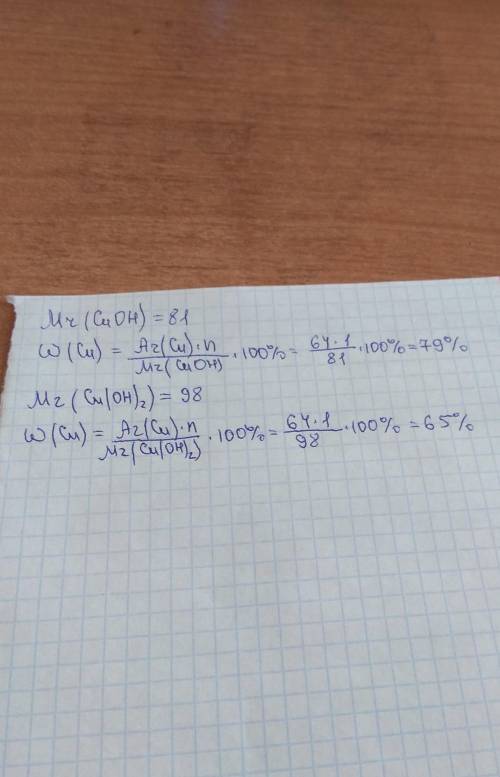 Mr (CuOH) = 81
ω (Cu) = Ar(Cu)·n / Mr(CuOH) · 100% = 64·1 / 81 · 100% = 79%
Mr (Cu(OH)₂) = 98
ω (Cu) = Ar(Cu)·n / Mr(Cu(OH)₂) · 100% = 64·1 / 98 · 100% = 65%